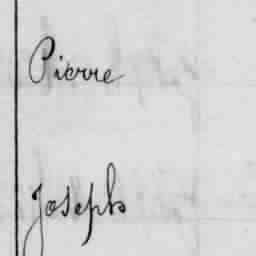 Pierre
Joseph